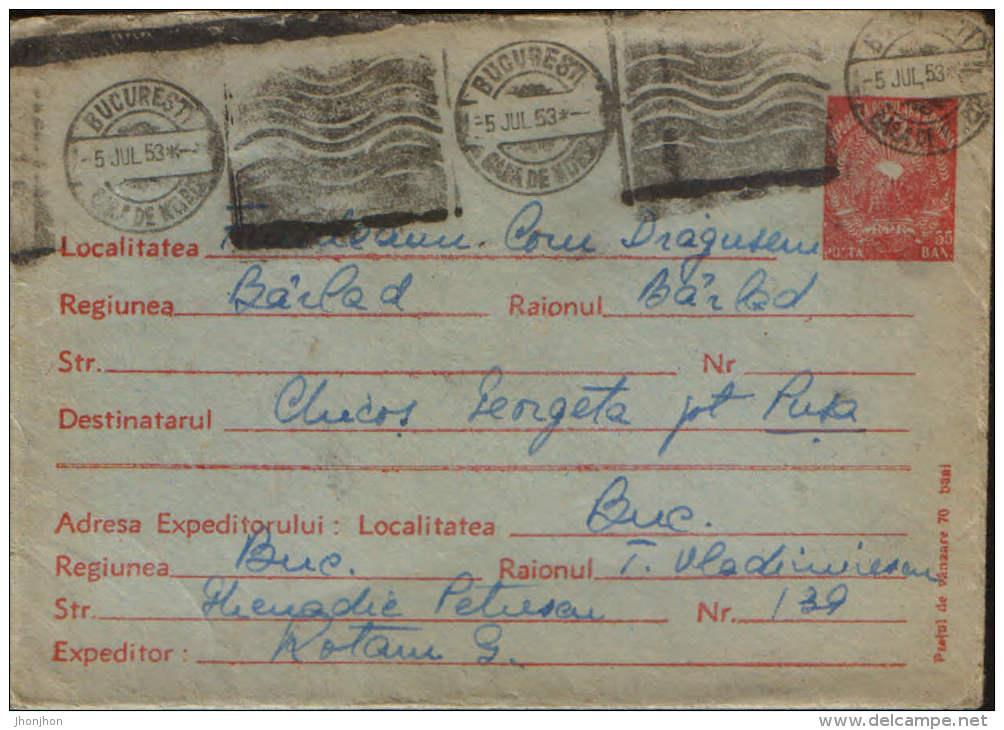 BUCURESTI
-5 JUL 53*-
GARA DE NORD
BUCURESTI
-5 JUL 53*-
GARA DE NORD
-5 JUL 53*
R P R
55
POSTA BANI
Localitatea Com Drăgușeni
Regiunea Bârlad Raionul Bârlad
Str. Nr
Destinatarul Chicoș Georgeta pt Pușa
Adresa Expeditorului : Localitatea Buc.
Regiunea Buc. Raionul T. Vladimirescu
Str. Ghenadie Petrescu Nr. 139
Expeditor : Rotaru G.
Prețul de vânzare 70 bani
jhonjhon
www.delcampe.net